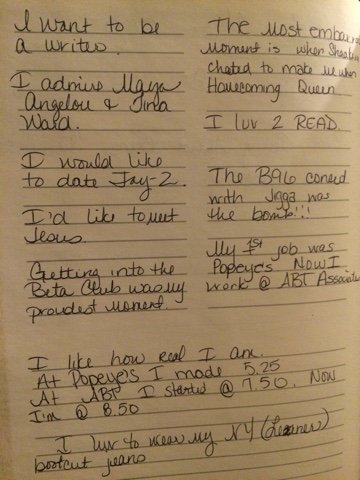 I want to be
a writer.
I admire Maya
Angelou & Tina
Ward.
I would like
to date Jay-Z.
I'd like to meet
Jesus.
Getting into the
Beta Club was my
proudest moment.
The most embarr
moment is when
chated to make me when
Homecoming Queen
I luv 2 READ.
The B96 concerd
with Jigga was
the bomb!!!
My 1st job was
Popeyes Now I
work @ ABT Associat
I like how real I am.
At Popeyes I made 5.25
At ABT I started @ 7.50. Now
I'm @ 8.50
I luv to wear my NY
bootcut jeans